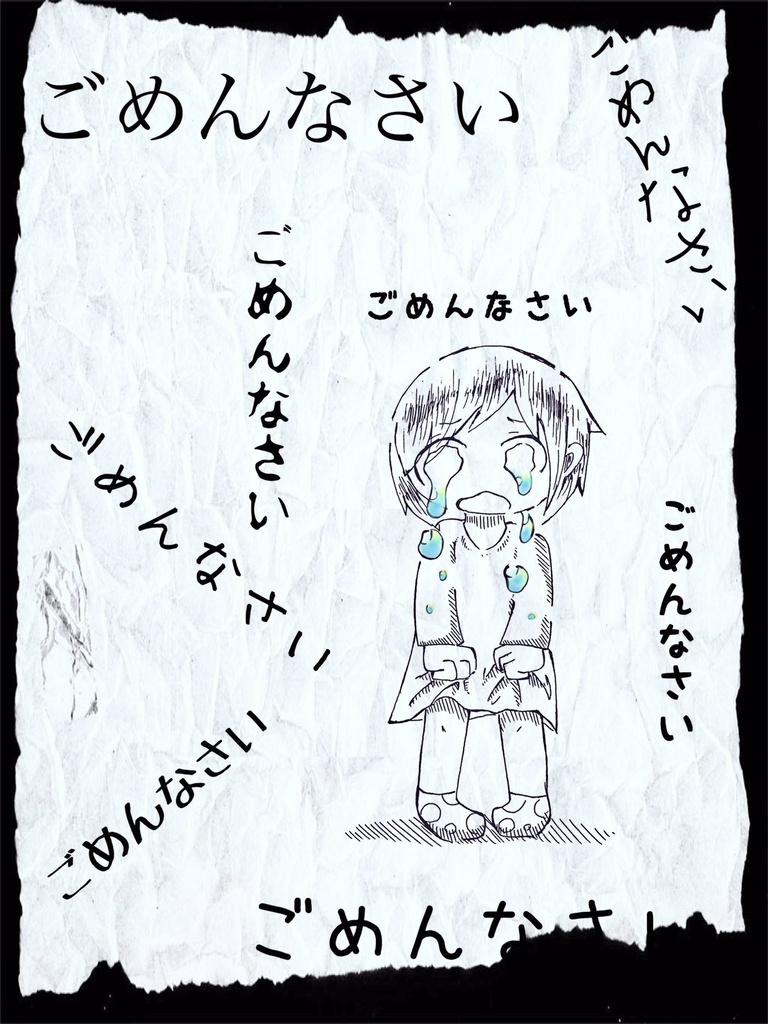 ごめんなさい
ごめんなさい
ごめんなさい
ごめんなさい
ごめんなさい
ごめんなさい
ごめんなさい
ごめんなさい